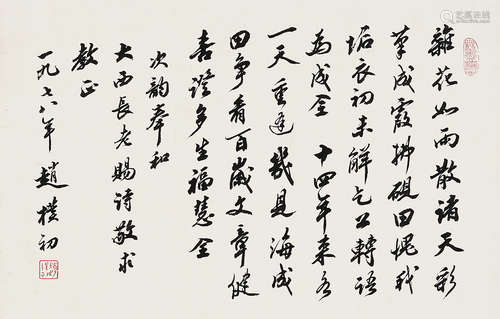 雜花如雨散諸天彩
筆成霞拂硯田愧我
垢衣初未解乞公轉語
為成全 十四年來各
一天重逢幾見海成
田爭看百歲文章健
喜證多生福慧全
次韻奉和
大西長老賜詩敬求
教正
一九七八年 趙樸初